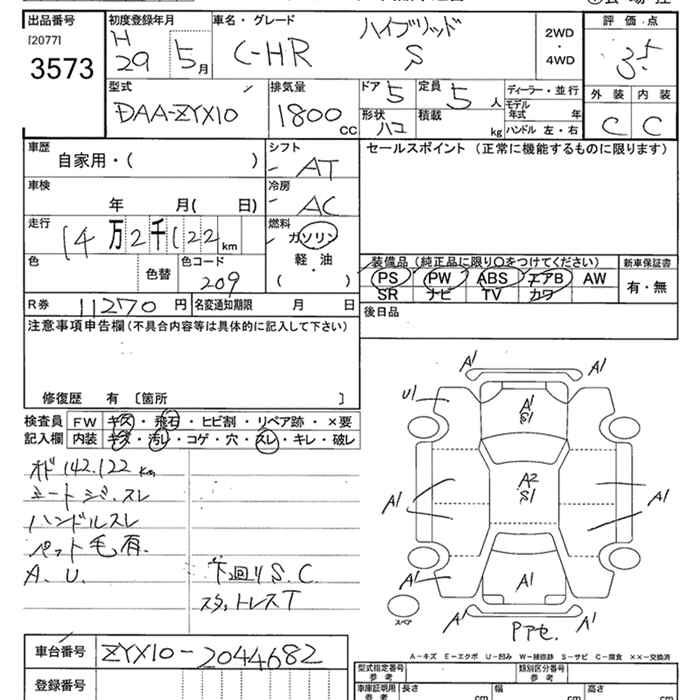 出品番号
[2077]
3573
初度登録年月
H
29 5月
車名・グレード
ハイブリッド
C-HR S
2WD
・
4WD
評価点
3.5
外装 内装
C C
型式
DAA-ZYX10
排気量
1800 CC
ドア 5
定員 5 人
形状 ハコ
積載 kg
ディーラー・並行
モデル
年式 年
ハンドル 左・右
車歴
自家用・( )
シフト
AT
セールスポイント (正常に機能するものに限ります)
車検
年 月( 日)
冷房
AC
走行
14万2千122km
燃料
ガソリン
軽・油
( )
色
色替
色コード
209
装備品 (純正品に限り○をつけてください)
PS PW ABS エアB AW
SR ナビ TV カワ
新車保証書
有・無
R券 11270 円
名変通知期限 月 日
後日品
注意事項申告欄 (不具合内容等は具体的に記入して下さい)
修復歴 有 〔箇所 〕
検査員
記入欄
FW キズ・飛石・ヒビ割・リペア跡・×要
内装 キズ・汚レ・コゲ・穴・スレ・キレ・破レ
オド142.122km
シートシミ.スレ
ハンドルスレ
ペット毛有.
A.U.
下回りS.C.
スタットレスT
A1 A1
U1 A1 A1
S1
A2
S1
A1 A1
A1 A1
A1 A1
Pアせ.
スペア
A-キズ E-エクボ U-凹み W-補修跡 S-サビ C-腐食 ××-交換済
車台番号 ZYX10-2044682
登録番号
型式指定番号
参考
類別区分番号
参考
車庫証明用
参考
長さ cm
幅 cm
高さ cm